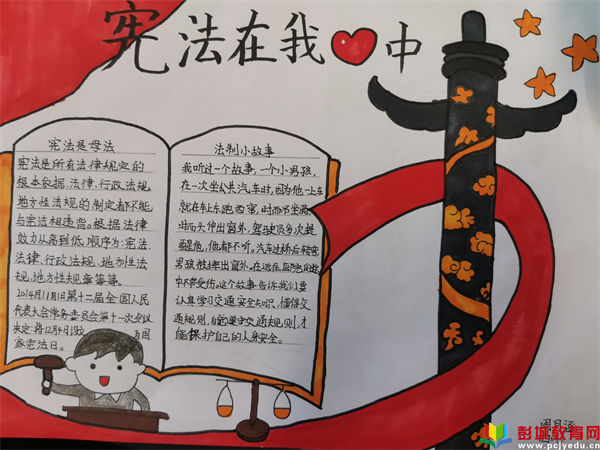 宪法在我中
宪法是母法
宪法是所有法律规定的
根本依据,法律、行政法规、
地方性法规的制定都不能
与宪法相违背。根据法律
效力从高到低,顺序为:宪法、
法律、行政法规、地方性法
规、地方性规章等等。
2014年11月1日第十二届全国人民
代表大会常务委员会第十一次会议
决定:将12月4日设立为国
家宪法日。
法制小故事
我听过一个故事,一个小男孩,
在一次坐公共汽车时,因为他一上车
就在车上东跑西窜,时而不坐着,
时而头伸出窗外,驾驶员多次提
醒他,他都不听。汽车过桥后转弯
男孩被摔出窗外,
中不幸受伤。这个故事告诉我们要
认真学习交通安全知识,懂得交
通规则,自觉遵守交通规则,才
能保护自己的人身安全。
周
彭城教育网
www.pcjyedu.cn